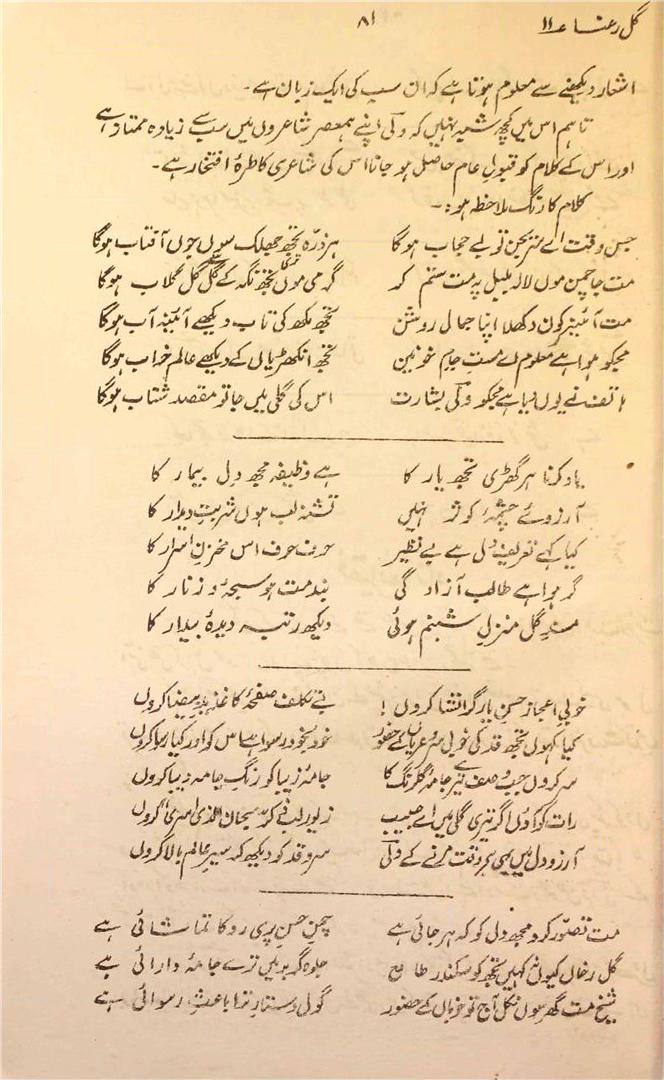 گل رعنا ۔ ۱۱ ۸۱
اشعار دیکھنے سے معلوم ہوتا ہے کہ ان سب کی ایک زبان ہے۔
تاہم اس میں کچھ شبہ نہیں کہ ولی اپنے ہمعصر شاعروں میں سب سے زیادہ ممتاز ہے
اور اس کے کلام کو قبول عام حاصل ہو جانا اس کی شاعری کا طرۂ افتخار ہے۔
کلام کا رنگ ملاحظہ ہو:۔
جس وقت اے سریجن تو بے حجاب ہوگا ہر ذرّہ تجھ جھلک سوں جوں آفتاب ہوگا
مت جا چمن موں لالہ بلبل پہ مت ستم کر گرمی موں تجھ نگہ کے گل گل گلاب ہوگا
مت آئینہ کوں دکھلا اپنا جمال روشن تجھ مکھ کی تاب دیکھے آئینہ آب ہوگا
مجکو ہوا ہے معلوم اے مست جام خونیں تجھ انکھڑیاں کے دیکھے عالم خراب ہوگا
ہاتف نے یوں دیا ہے مجکو ولی بشارت اس کی گلی میں جا تو مقصد شتاب ہوگا
یاد کرنا ہر گھڑی تجھ یار کا ہے وظیفہ مجھ دل بیمار کا
آرزوئے چشمۂ کوثر نہیں تشنہ لب ہوں شربت دیدار کا
کیا کہے تعریف دل ہے بے نظیر حرف حرف اس مخزن اسرار کا
گر ہوا ہے طالب آزادگی بند مت ہو سبحہ و زنار کا
مسند گل منزل شبنم ہوئی دیکھ رتبہ دیدۂ بیدار کا
خوبی اعجاز حسن یار گر انشا کروں! بے تکلف صفحۂ کاغذ ید بیضا کروں
کیا کہوں تجھ قد کی خوبی سرو عریاں کے حضور خود بخود رسوا ہے اس کو اور کیا رسوا کروں
سر کروں جب وصف تیرے جامۂ گلرنگ کا جامۂ زیبا کو رنگ جامہ دیبا کروں
رات کو آؤں اگر تیری گلی میں اے حبیب زیور لب ذکر سبحان الذی اسریٰ کروں
آرزو دل میں یہی ہے وقت مرنے کے ولی سرو قد کو دیکھ کر سیر عالم بالا کروں
مت تصوّر کرو مجھ دل کو کہ ہرجائی ہے چمن حسن پری رو کا تماشائی ہے
گل رخاں کیوں نہ کہیں تجھ کو سکندر طالع جلوہ گر بر میں ترے جامۂ دارائی ہے
شیخ مت گھر سوں نکل آج تو خوباں کے حضور گول دستار ترا باعث رسوائی ہے